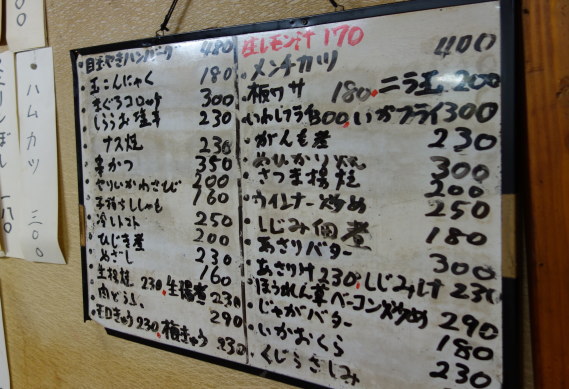 ハムカツ 三〇〇
目玉やきハンバーグ 480
玉こんにゃく 180
まぐろコロッケ 300
しらうお塩辛 230
ナス焼 230
串かつ 350
やりいかわさび 200
子持ちししゃも 160
冷しトマト 250
ひじき煮 200
めざし 230
生揚焼 160
230 生揚煮 230
肉どうふ 290
モロきゅう 230 梅きゅう 230
生レモン汁 170
メンチカツ 400
板ワサ 180 ニラ玉 200
いわしフライ 300 いかフライ 300
がんも煮 230
めひかり 300
さつま揚焼 200
ウインナー炒め 250
しじみ佃煮 180
あさりバター 300
あさり汁 230 しじみ汁 230
ほうれん草ベーコン炒め 290
じゃがバター 180
いかおくら 230
くじらさしみ